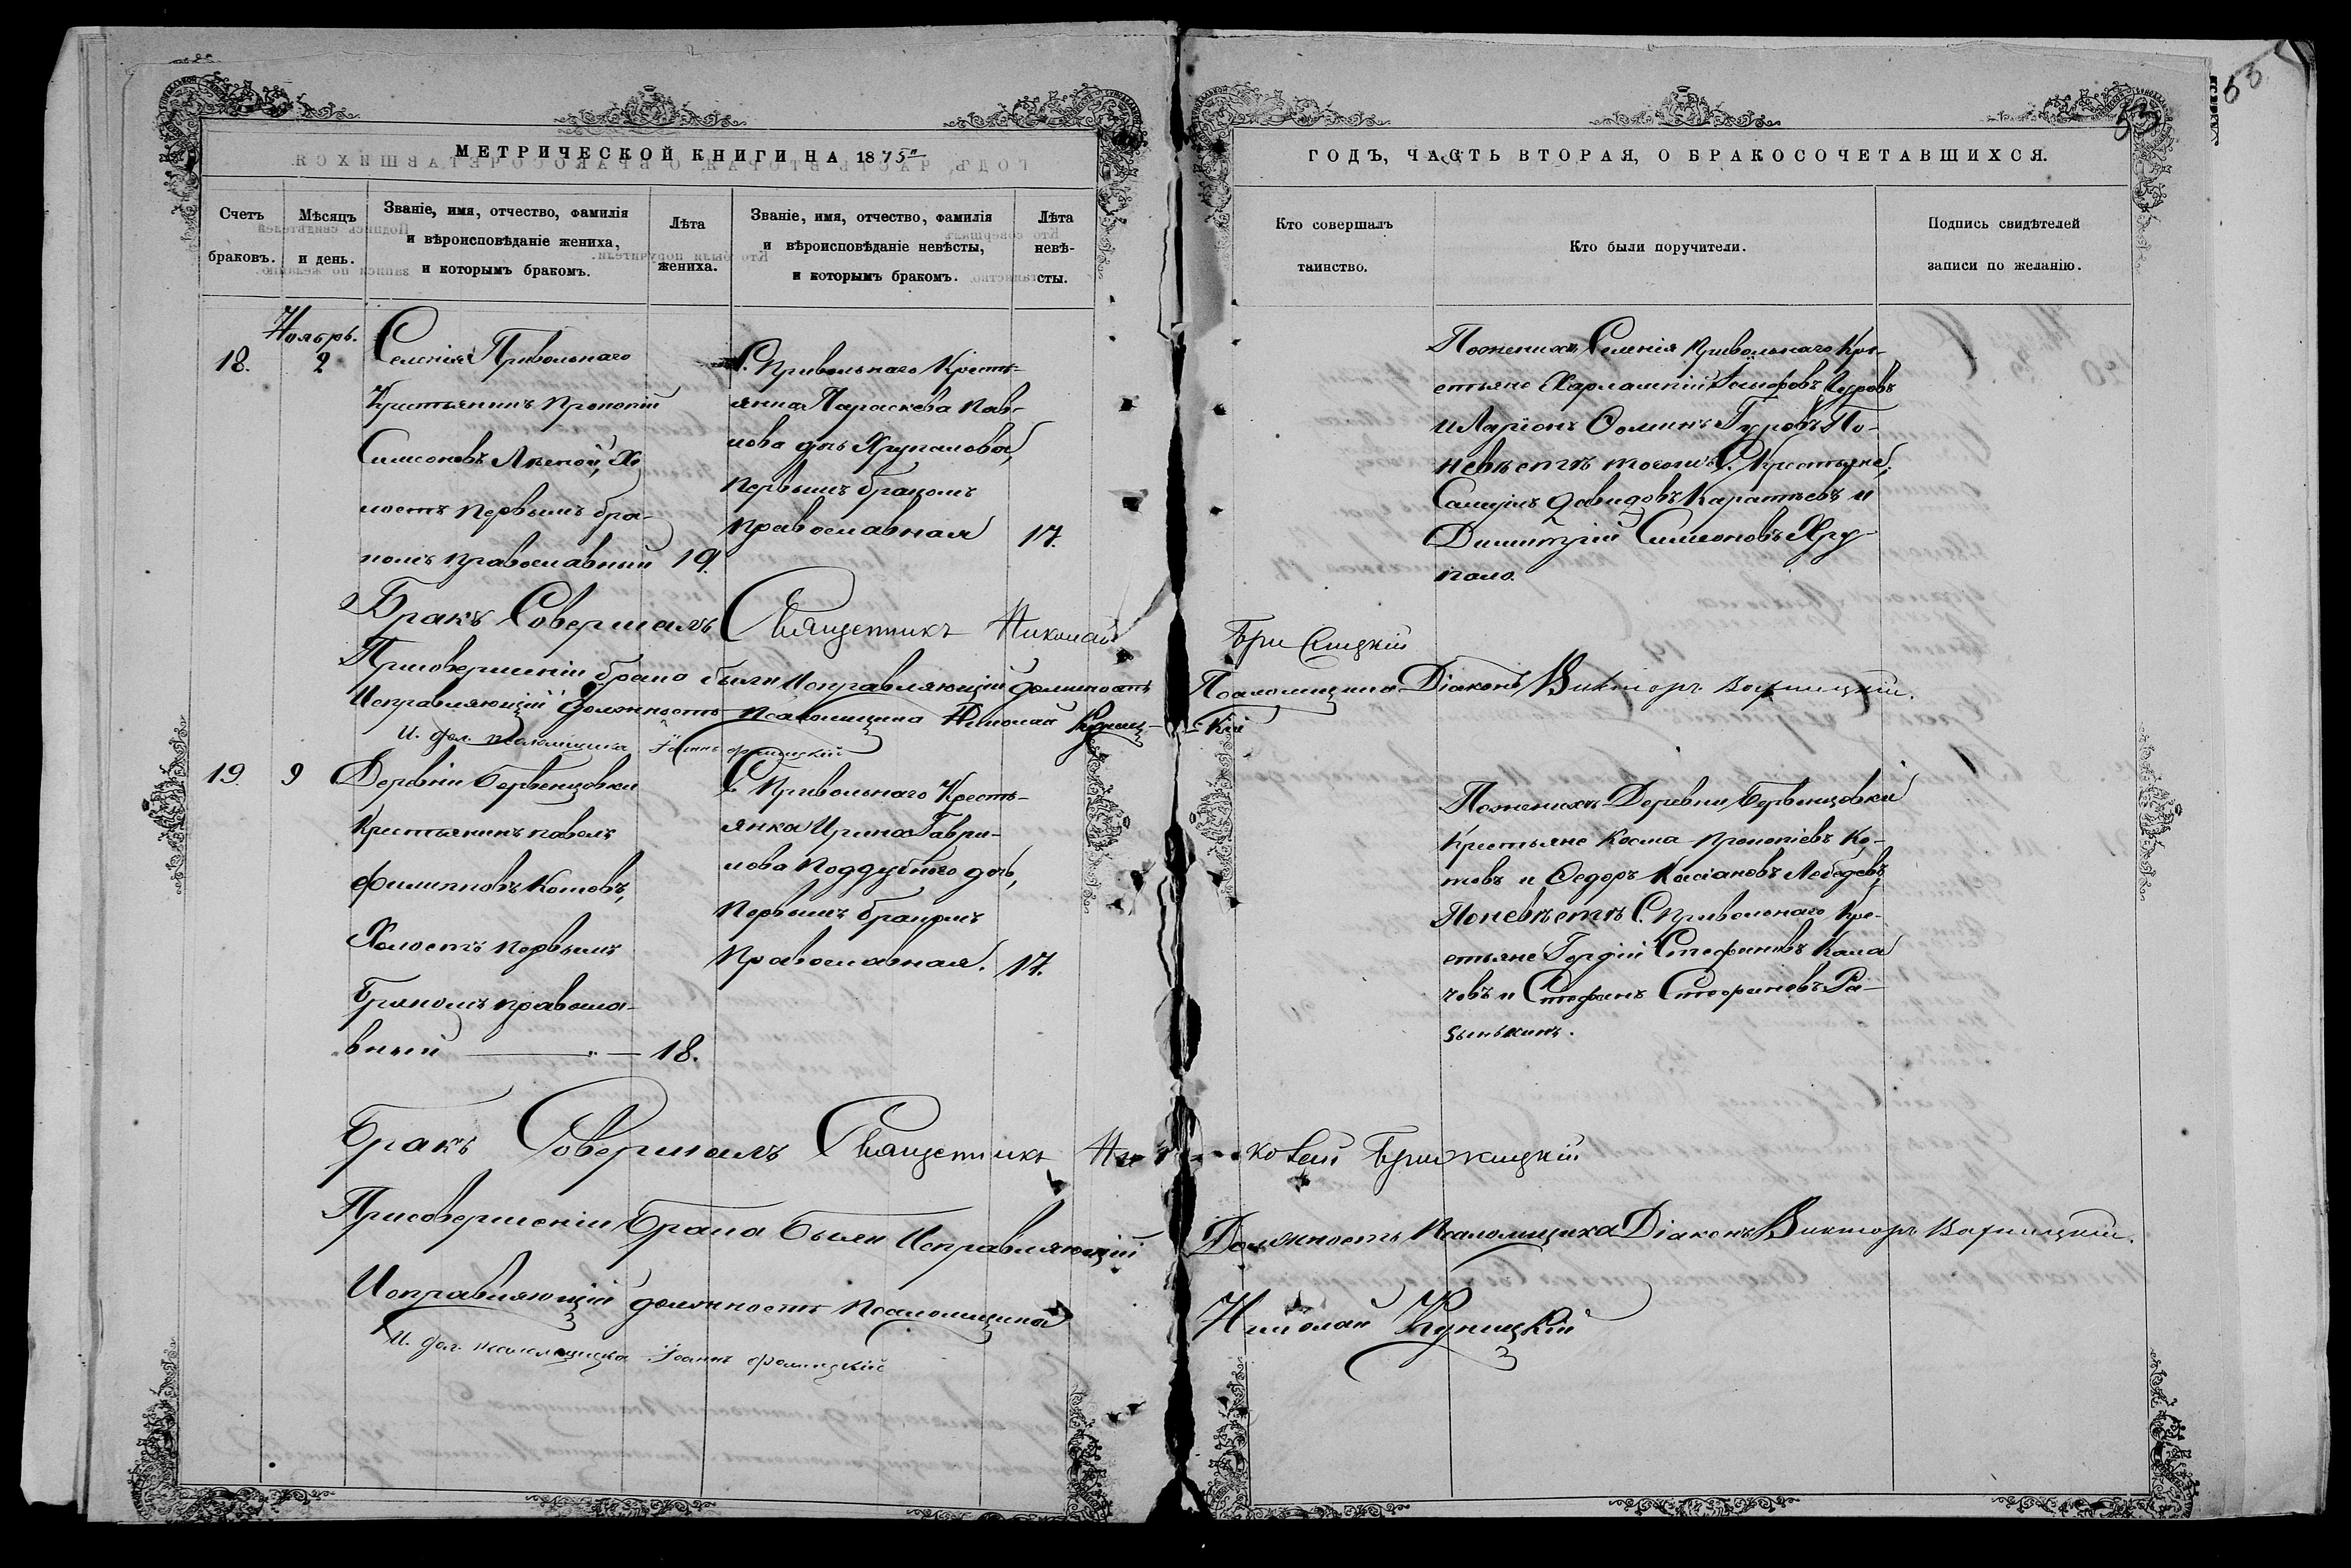 53
53
МЕТРИЧЕСКОЙ КНИГИ НА 1875й
Счетъ браковъ.
Мѣсяцъ и день.
Званіе, имя, отчество, фамилія
и вѣроисповѣданіе жениха,
и которымъ бракомъ.
Лѣта жениха.
Званіе, имя, отчество, фамилія
и вѣроисповѣданіе невѣсты,
и которымъ бракомъ.
Лѣта невѣ-
сты.
ГОДЪ, ЧАСТЬ ВТОРАЯ, О БРАКОСОЧЕТАВШИХСЯ.
Кто совершалъ
таинство.
Кто были поручители.
Подпись свидѣтелей
записи по желанію.
Ноябрь.
18.
2
Селенія Привольнаго
Крестьянинъ Прокопій
Симеоновъ Хо
лостъ первымъ бра-
комъ православный
19.
С. Привольнаго Кресть-
янка Параскева Пав-
лова дчь Хрупалова,
первымъ бракомъ
православная
17.
По женихѣ Селенія Привольнаго Кре-
стьяне Харлампій Гуровъ
и Ларіонъ Ѳоминъ Гуровъ По
невѣстѣ тогоже С. Крестьяне,
Самуилъ Давидовъ Каратѣевъ и
Димитрій Симеоновъ Хру-
пало.
Бракъ Совершалъ Священникъ Николай Бржицкій
При совершеніи брака были Исправляющій должность Псаломщика Діаконъ Викторъ
Исправляющій должность Псаломщика Николай Куницкій
И. дол. псаломщика Іоаннъ
19.
9
Деревни Бервенцовки
Крестьянинъ Павелъ
Филипповъ Котовъ,
Холостъ первымъ
бракомъ правосла-
вный
18.
С Привольнаго Кресть-
янка Ирина Гаври-
лова Поддубного дчь,
Первымъ бракомъ
Православная.
17.
По женихѣ Деревни Бервенцовки
Крестьяне Косма Прокопіевъ Ко-
товъ и Ѳедоръ Касіановъ Лебедевъ,
По невѣстѣ С. Привольнаго Кре-
стьяне Гордій Стефановъ Кала
човъ и Стефанъ Стефановъ Ра-
зинькинъ.
Бракъ Совершалъ Священникъ Николай Бржицкій
При совершеніи Брака были Исправляющій Должность Псаломщика Діаконъ Викторъ
Исправляющій должность Псаломщика Николай Куницкій
И. дол. псаломщика Іоаннъ